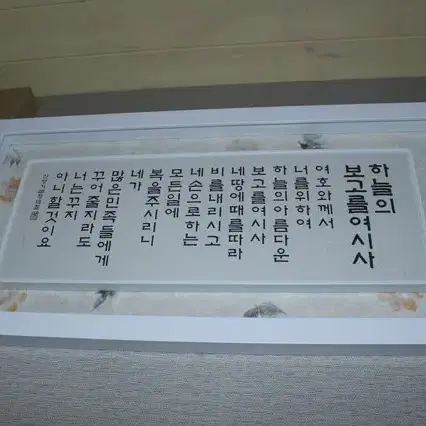 하늘의
보고를여시사
여호와께서
너를위하여
하늘의아름다운
보고를여시사
네땅에때를따라
비를내리시고
네손으로하는
모든일에
복을주시리니
네가
많은민족들에게
꾸어줄지라도
너는꾸지
아니할것이요